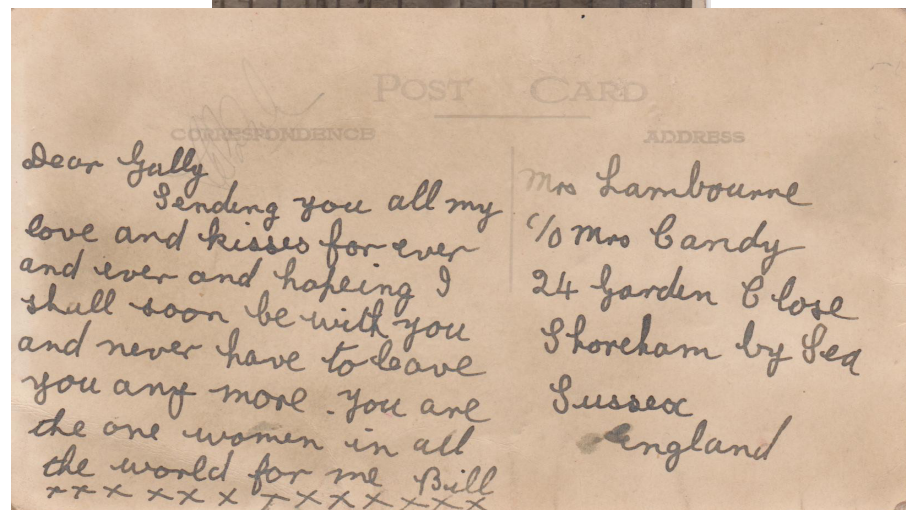 POST CARD
CORRESPONDENCE
ADDRESS
Dear Gally
Sending you all my
love and kisses for ever
and ever and hopeing I
shall soon be with you
and never have to leave
you any more. You are
the one women in all
the world for me Bill
x x x x x x x x x x x x x
Mrs Lambourne
c/o Mrs Candy
24 Garden Close
Shoreham by Sea
Sussex
England